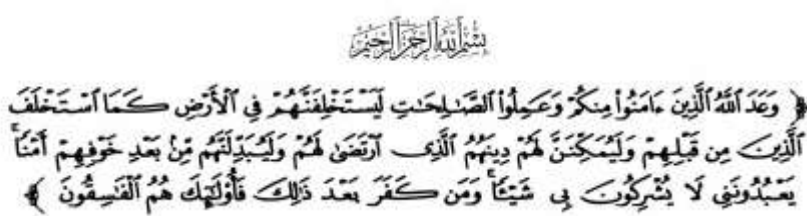 بِسْمِ اللَّهِ الرَّحْمَٰنِ الرَّحِيمِ
﴿ وَعَدَ اللَّهُ الَّذِينَ ءَامَنُوا۟ مِنكُمْ وَعَمِلُوا۟ الصَّـٰلِحَـٰتِ لَيَسْتَخْلِفَنَّهُمْ فِي ٱلْأَرْضِ كَمَا ٱسْتَخْلَفَ
ٱلَّذِينَ مِن قَبْلِهِمْ وَلَيُمَكِّنَنَّ لَهُمْ دِينَهُمُ ٱلَّذِى ٱرْتَضَىٰ لَهُمْ وَلَيُبَدِّلَنَّهُم مِّنۢ بَعْدِ خَوْفِهِمْ أَمْنًا ۚ
يَعْبُدُونَنِي لَا يُشْرِكُونَ بِي شَيْـًٔا ۚ وَمَن كَفَرَ بَعْدَ ذَٰلِكَ فَأُو۟لَـٰٓئِكَ هُمُ ٱلْفَـٰسِقُونَ ﴾